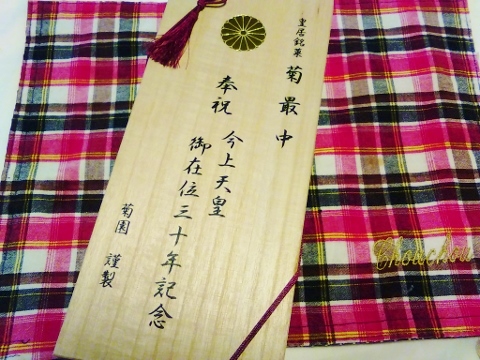 皇居銘菓
菊最中
奉祝 今上天皇
御在位三十年記念
菊園 謹製
Chouchou